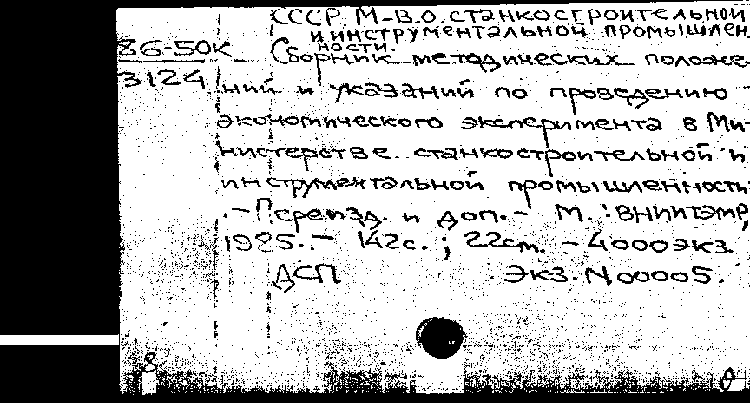 СССР. М-В.О. СТАНКОСТРОИТЕЛЬНОЙ
И ИНСТРУМЕНТАЛЬНОЙ ПРОМЫШЛЕН
НОСТИ.
86-50К
3124
Сборник методических положе-
ний и указаний по проведению
экономического эксперимента в Ми-
нистерстве станкостроительной и
инструментальной промышленности
.-Переизд. и доп.- М.: ВНИИТЭМР,
1985.- 142с. ; 22см. - 4000экз.
ДСП экз. N 00005.
8